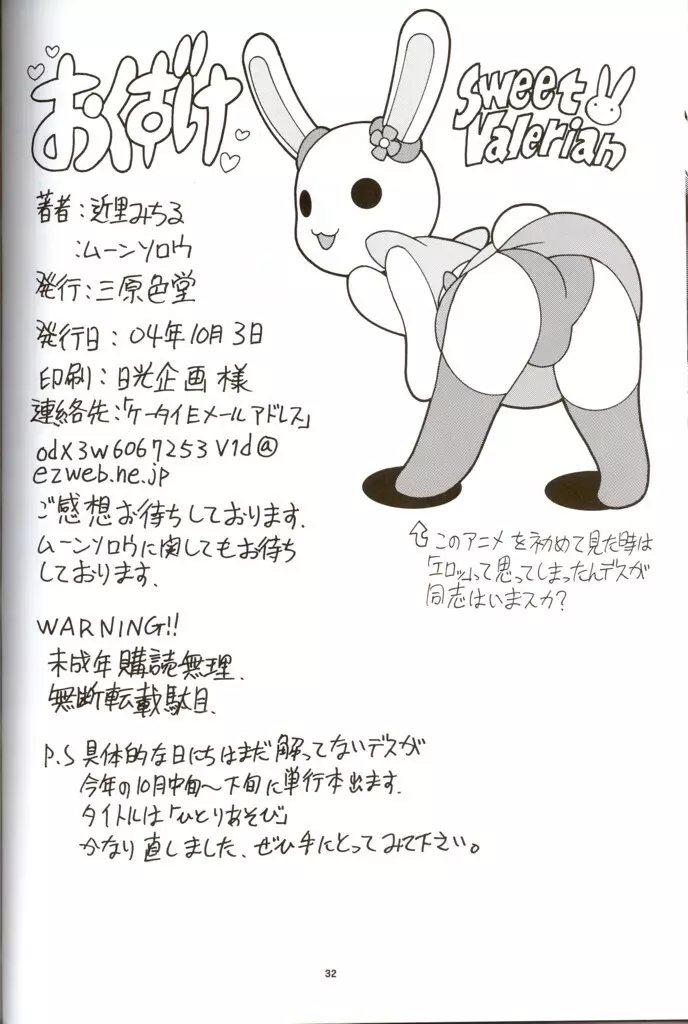 おくばけ
Sweet
Valerian
著者：近里みちる
：ムーンソロウ
発行：三原色堂
発行日：04年10月3日
印刷：日光企画様
連絡先：「ケータイEメールアドレス」
odx3w6067253v1d@
ezweb.ne.jp
ご感想お待ちしております.
ムーンソロウに関してもお待ち
しております.
⇧このアニメを初めて見た時は
「エロッ」って思ってしまったんデスが
同志はいまスカ?
WARNING!!
未成年購読無理.
無断転載駄目.
P.S 具体的な日にちはまだ解ってないデスが
今年の10月中旬〜下旬に単行本出ます.
タイトルは「ひとりあそび」
かなり直しました、ぜひ手にとってみて下さい。
32